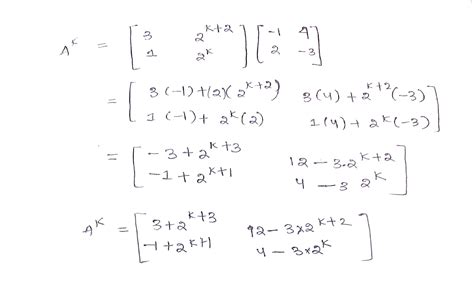 A^K = [ 3 2^{K+2} ] [ -1 4 ]
[ 1 2^K ] [ 2 -3 ]
= [ 3(-1)+(2)(2^{K+2}) 3(4)+2^{K+2}(-3) ]
[ 1(-1)+2^K(2) 1(4)+2^K(-3) ]
= [ -3+2^{K+3} 12-3·2^{K+2} ]
[ -1+2^{K+1} 4-3 2^K ]
A^K = [ 3+2^{K+3} 12-3×2^{K+2} ]
[ -1+2^{K+1} 4-3×2^K ]